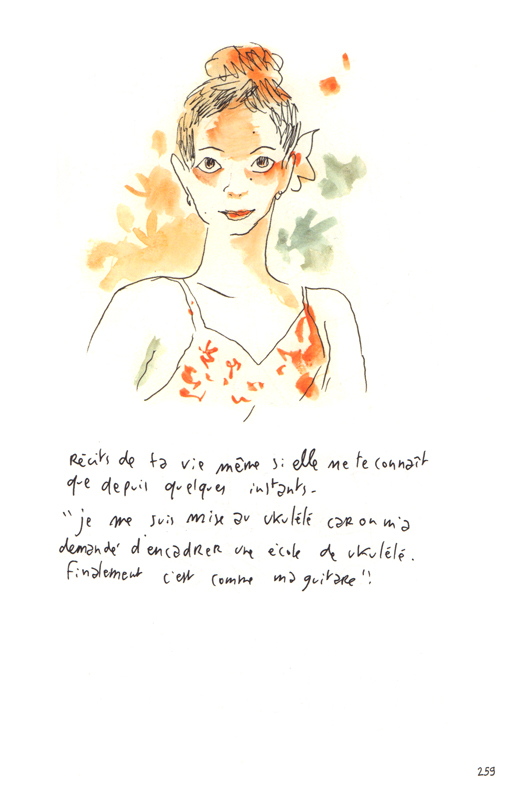 Récits de ta vie même si elle ne te connaît
que depuis quelques instants-
"je me suis mise au ukulélé car on m'a
demandé d'encadrer une école de ukulélé.
Finalement c'est comme ma guitare"!
259